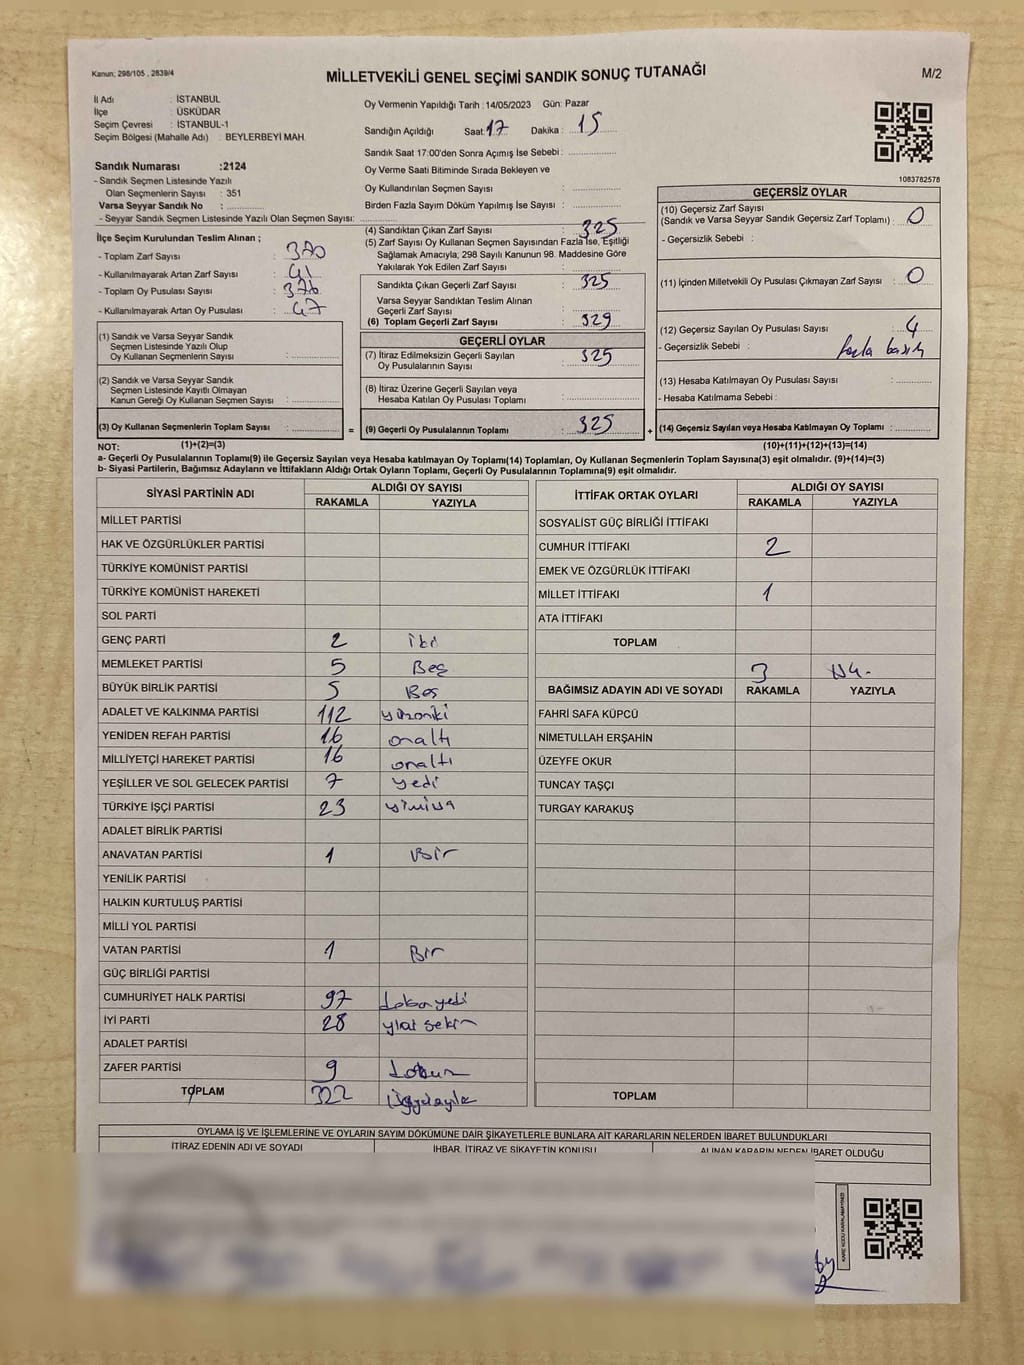 Kanun; 298/105 , 2839/4
MİLLETVEKİLİ GENEL SEÇİMİ SANDIK SONUÇ TUTANAĞI
M/2
İl Adı : İSTANBUL
İlçe : ÜSKÜDAR
Seçim Çevresi : İSTANBUL-1
Seçim Bölgesi (Mahalle Adı) : BEYLERBEYİ MAH.
Oy Vermenin Yapıldığı Tarih : 14/05/2023 Gün: Pazar
Sandığın Açıldığı Saat: 17 Dakika : 15
Sandık Saat 17:00'den Sonra Açımış İse Sebebi :
Oy Verme Saati Bitiminde Sırada Bekleyen ve
Oy Kullandırılan Seçmen Sayısı :
Birden Fazla Sayım Döküm Yapılmış İse Sayısı :
1083782578
Sandık Numarası :2124
- Sandık Seçmen Listesinde Yazılı
Olan Seçmenlerin Sayısı : 351
Varsa Seyyar Sandık No :
- Seyyar Sandık Seçmen Listesinde Yazılı Olan Seçmen Sayısı:
İlçe Seçim Kurulundan Teslim Alınan ;
- Toplam Zarf Sayısı : 370
- Kullanılmayarak Artan Zarf Sayısı : 41
- Toplam Oy Pusulası Sayısı : 376
- Kullanılmayarak Artan Oy Pusulası : 47
(1) Sandık ve Varsa Seyyar Sandık
Seçmen Listesinde Yazılı Olup
Oy Kullanan Seçmenlerin Sayısı :
(2) Sandık ve Varsa Seyyar Sandık
Seçmen Listesinde Kayıtlı Olmayan
Kanun Gereği Oy Kullanan Seçmen Sayısı :
(3) Oy Kullanan Seçmenlerin Toplam Sayısı :
(1)+(2)=(3)
(4) Sandıktan Çıkan Zarf Sayısı : 325
(5) Zarf Sayısı Oy Kullanan Seçmen Sayısından Fazla İse, Eşitliği
Sağlamak Amacıyla; 298 Sayılı Kanunun 98. Maddesine Göre
Yakılarak Yok Edilen Zarf Sayısı :
Sandıkta Çıkan Geçerli Zarf Sayısı : 325
Varsa Seyyar Sandıktan Teslim Alınan
Geçerli Zarf Sayısı :
(6) Toplam Geçerli Zarf Sayısı : 329
GEÇERLİ OYLAR
(7) İtiraz Edilmeksizin Geçerli Sayılan
Oy Pusulalarının Sayısı : 325
(8) İtiraz Üzerine Geçerli Sayılan veya
Hesaba Katılan Oy Pusulası Toplamı :
= (9) Geçerli Oy Pusulalarının Toplamı : 325 +
GEÇERSİZ OYLAR
(10) Geçersiz Zarf Sayısı
(Sandık ve Varsa Seyyar Sandık Geçersiz Zarf Toplamı) : 0
- Geçersizlik Sebebi :
(11) İçinden Milletvekili Oy Pusulası Çıkmayan Zarf Sayısı : 0
(12) Geçersiz Sayılan Oy Pusulası Sayısı : 4
- Geçersizlik Sebebi : fazla basım
(13) Hesaba Katılmayan Oy Pusulası Sayısı :
- Hesaba Katılmama Sebebi :
(14) Geçersiz Sayılan veya Hesaba Katılmayan Oy Toplamı :
(10)+(11)+(12)+(13)=(14)
NOT:
a- Geçerli Oy Pusulalarının Toplamı(9) ile Geçersiz Sayılan veya Hesaba katılmayan Oy Toplamı(14) Toplamları, Oy Kullanan Seçmenlerin Toplam Sayısına(3) eşit olmalıdır. (9)+(14)=(3)
b- Siyasi Partilerin, Bağımsız Adayların ve İttifakların Aldığı Ortak Oyların Toplamı, Geçerli Oy Pusulalarının Toplamına(9) eşit olmalıdır.
SİYASİ PARTİNİN ADI ALDIĞI OY SAYISI
RAKAMLA YAZIYLA
MİLLET PARTİSİ
HAK VE ÖZGÜRLÜKLER PARTİSİ
TÜRKİYE KOMÜNİST PARTİSİ
TÜRKİYE KOMÜNİST HAREKETİ
SOL PARTİ
GENÇ PARTİ 2 iki
MEMLEKET PARTİSİ 5 Beş
BÜYÜK BİRLİK PARTİSİ 5 Beş
ADALET VE KALKINMA PARTİSİ 112 yüzoniki
YENİDEN REFAH PARTİSİ 16 onaltı
MİLLİYETÇİ HAREKET PARTİSİ 16 onaltı
YEŞİLLER VE SOL GELECEK PARTİSİ 7 yedi
TÜRKİYE İŞÇİ PARTİSİ 23
ADALET BİRLİK PARTİSİ
ANAVATAN PARTİSİ 1 Bir
YENİLİK PARTİSİ
HALKIN KURTULUŞ PARTİSİ
MİLLİ YOL PARTİSİ
VATAN PARTİSİ 1 Bir
GÜÇ BİRLİĞİ PARTİSİ
CUMHURİYET HALK PARTİSİ 97
İYİ PARTİ 28
ADALET PARTİSİ
ZAFER PARTİSİ 9
TOPLAM 322
İTTİFAK ORTAK OYLARI ALDIĞI OY SAYISI
RAKAMLA YAZIYLA
SOSYALİST GÜÇ BİRLİĞİ İTTİFAKI
CUMHUR İTTİFAKI 2
EMEK VE ÖZGÜRLÜK İTTİFAKI
MİLLET İTTİFAKI 1
ATA İTTİFAKI
TOPLAM
3
BAĞIMSIZ ADAYIN ADI VE SOYADI RAKAMLA YAZIYLA
FAHRİ SAFA KÜPCÜ
NİMETULLAH ERŞAHİN
ÜZEYFE OKUR
TUNCAY TAŞÇI
TURGAY KARAKUŞ
TOPLAM
OYLAMA İŞ VE İŞLEMLERİNE VE OYLARIN SAYIM DÖKÜMÜNE DAİR ŞİKAYETLERLE BUNLARA AİT KARARLARIN NELERDEN İBARET BULUNDUKLARI
İTİRAZ EDENİN ADI VE SOYADI İHBAR, İTİRAZ VE ŞİKAYETİN KONUSU ALINAN KARARIN NEDEN İBARET OLDUĞU
KARE KODU KARALAMAYINIZ!